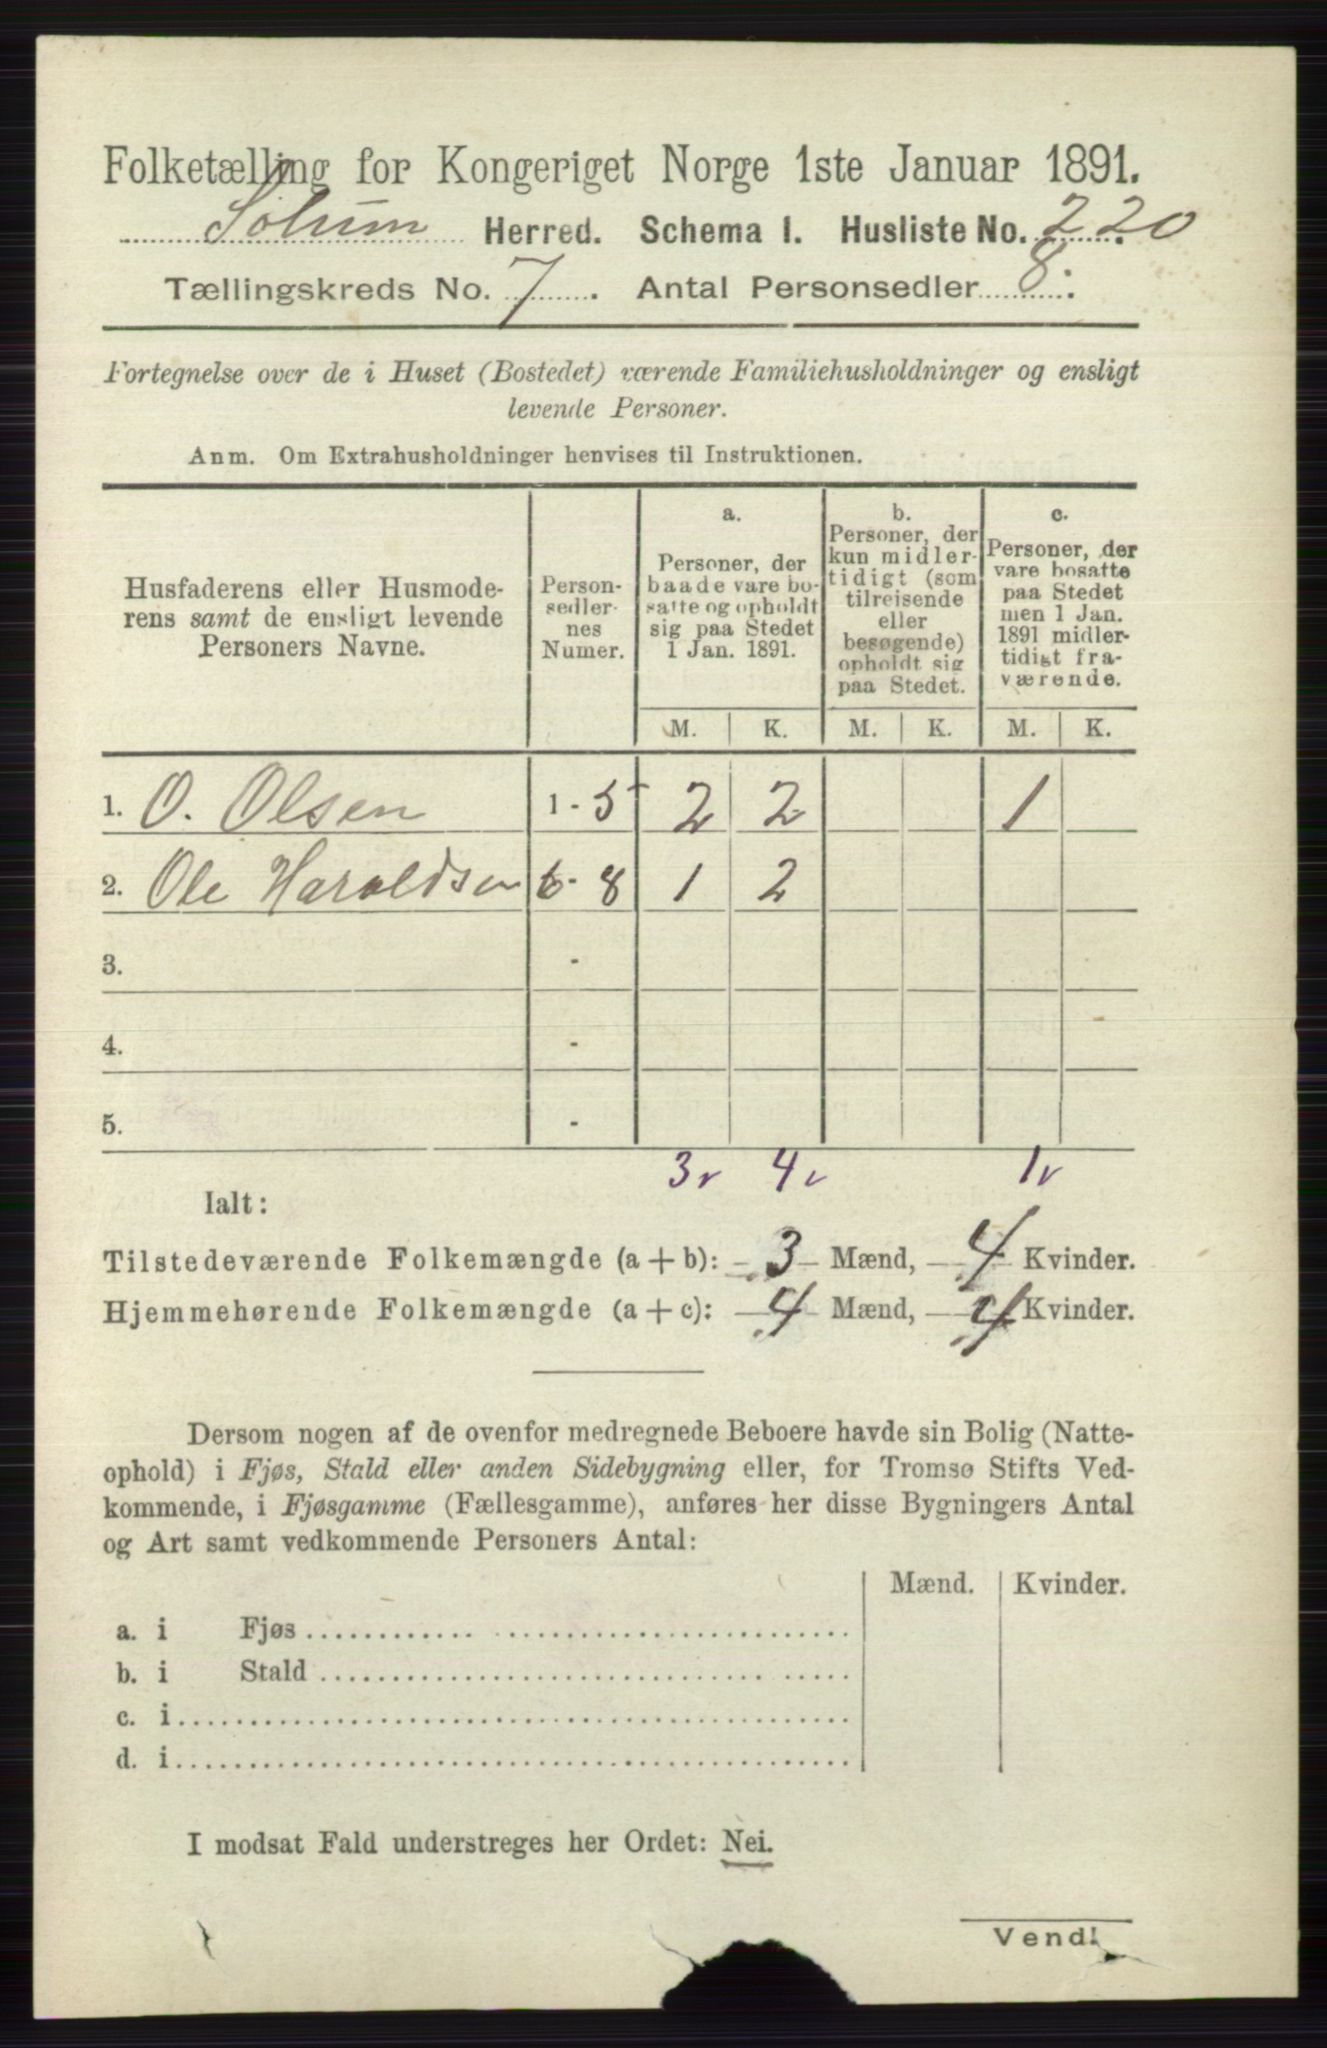 Folketælling for Kongeriget Norge 1ste Januar 1891.
Solum Herred. Schema I. Husliste No. 220
Tællingskreds No. 7. Antal Personsedler 8.
Fortegnelse over de i Huset (Bostedet) værende Familiehusholdninger og ensligt
levende Personer.
Anm. Om Extrahusholdninger henvises til Instruktionen.
Husfaderens eller Husmode-
rens samt de ensligt levende
Personers Navne.
Person-
sedler-
nes
Numer.
a.
Personer, der
baade vare bo-
satte og opholdt
sig paa Stedet
1 Jan. 1891.
b.
Personer, der
kun midler-
tidigt (som
tilreisende
eller
besøgende)
opholdt sig
paa Stedet.
c.
Personer, der
vare bosatte
paa Stedet
men 1 Jan.
1891 midler-
tidigt fra-
værende.
M. K. M. K. M. K.
1. O. Olsen 1 - 5 2 2 1
2. Ole Haroldsen 6 - 8 1 2
3. -
4. -
5. -
3 v 4 v 1 v
Ialt:
Tilstedeværende Folkemængde (a + b): 3 Mænd, 4 Kvinder.
Hjemmehørende Folkemængde (a + c): 4 Mænd, 4 Kvinder.
Dersom nogen af de ovenfor medregnede Beboere havde sin Bolig (Natte-
ophold) i Fjøs, Stald eller anden Sidebygning eller, for Tromsø Stifts Ved-
kommende, i Fjøsgamme (Fællesgamme), anføres her disse Bygningers Antal
og Art samt vedkommende Personers Antal:
Mænd. Kvinder.
a. i Fjøs
b. i Stald
c. i
d. i
I modsat Fald understreges her Ordet: Nei.
Vend!